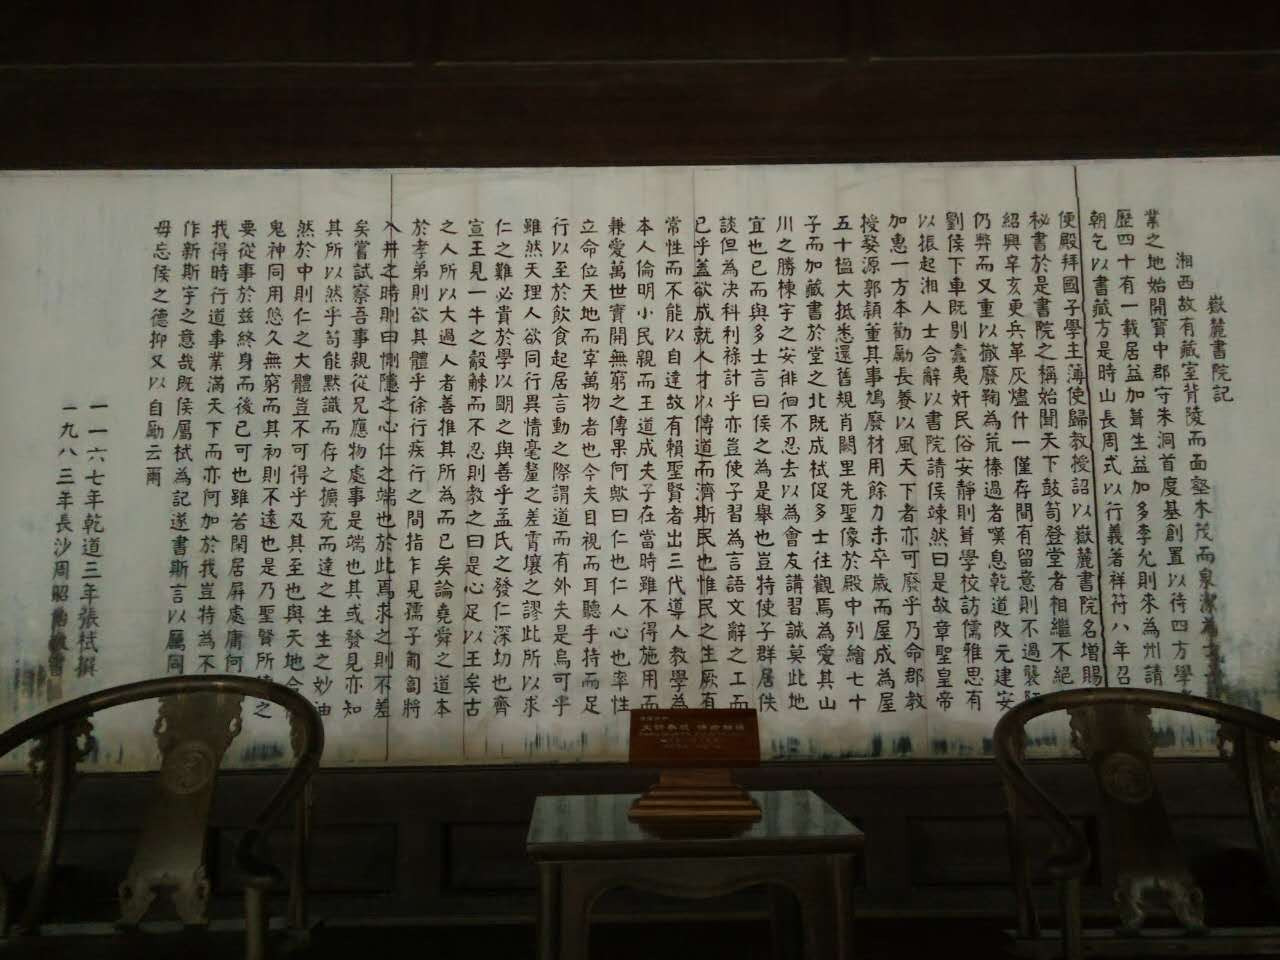 嶽麓書院記
湘西故有藏室背陵而面壑木茂而泉潔為士
業之地始開寶中郡守朱洞首度基創置以待四方學
歷四十有一載居益加葺生益加多李允則來為州請
朝乞以書藏方是時山長周式以行義著祥符八年召
便殿拜國子學主薄使歸教授詔以嶽麓書院名增賜
秘書於是書院之稱始聞天下鼓笥登堂者相繼不絕
紹興辛亥更兵革灰燼什一僅存間有留意則不過襲陋
仍弊而又重以撤廢鞠為荒榛過者嘆息乾道改元建安
劉侯下車既剔蠹夷奸民俗安靜則葺學校訪儒雅思有
以振起湘人士合辭以書院請侯竦然曰是故章聖皇帝
加惠一方本勸勵長養以風天下者亦可廢乎乃命郡教
授婺源郭穎董其事鳩廢材用餘力未卒歲而屋成為屋
五十楹大抵悉還舊規肖闕里先聖像於殿中列繪七十
子而加藏書於堂之北既成栻促多士往觀焉為愛其山
川之勝棟宇之安徘徊不忍去以為會友講習誠莫此地
宜也已而與多士言曰侯之為是舉也豈特使子群居佚
談但為决科利祿計乎亦豈使子習為言語文辭之工而
已乎蓋欲成就人才以傳道而濟斯民也惟民之生厥有
常性而不能以自達故有賴聖賢者出三代導人教學為
本人倫明小民親而王道成夫子在當時雖不得施用而
兼愛萬世實開無窮之傳果何歟曰仁也仁人心也率性
立命位天地而宰萬物者也今夫目視而耳聽手持而足
行以至於飲食起居言動之際謂道而有外夫是烏可乎
雖然天理人欲同行異情毫釐之差霄壤之謬此所以求
仁之難必貴於學以明之與善乎孟氏之發仁深切也齊
宣王見一牛之觳觫而不忍則教之曰是心足以王矣古
之人所以大過人者善推其所為而已矣論堯舜之道本
於孝弟則欲其體乎徐行疾行之間指乍見孺子匍匐將
入井之時則曰惻隱之心仁之端也於此焉求之則不差
矣嘗試察吾事親從兄應物處事是端也其或發見亦知
其所以然乎苟能默識而存之擴充而達之生生之妙油
然於中則仁之大體豈不可得乎及其至也與天地合
鬼神同用悠久無窮而其初則不遠也是乃聖賢所傳之
要從事於兹終身而後已可也雖若閑居屏處庸何
我得時行道事業滿天下而亦何加於我豈特為不
作新斯宇之意哉既侯屬栻為記遂書斯言以厲同
毋忘侯之德抑又以自勵云爾
一一六七年乾道三年張栻撰
一九八三年長沙周昭怡敬書